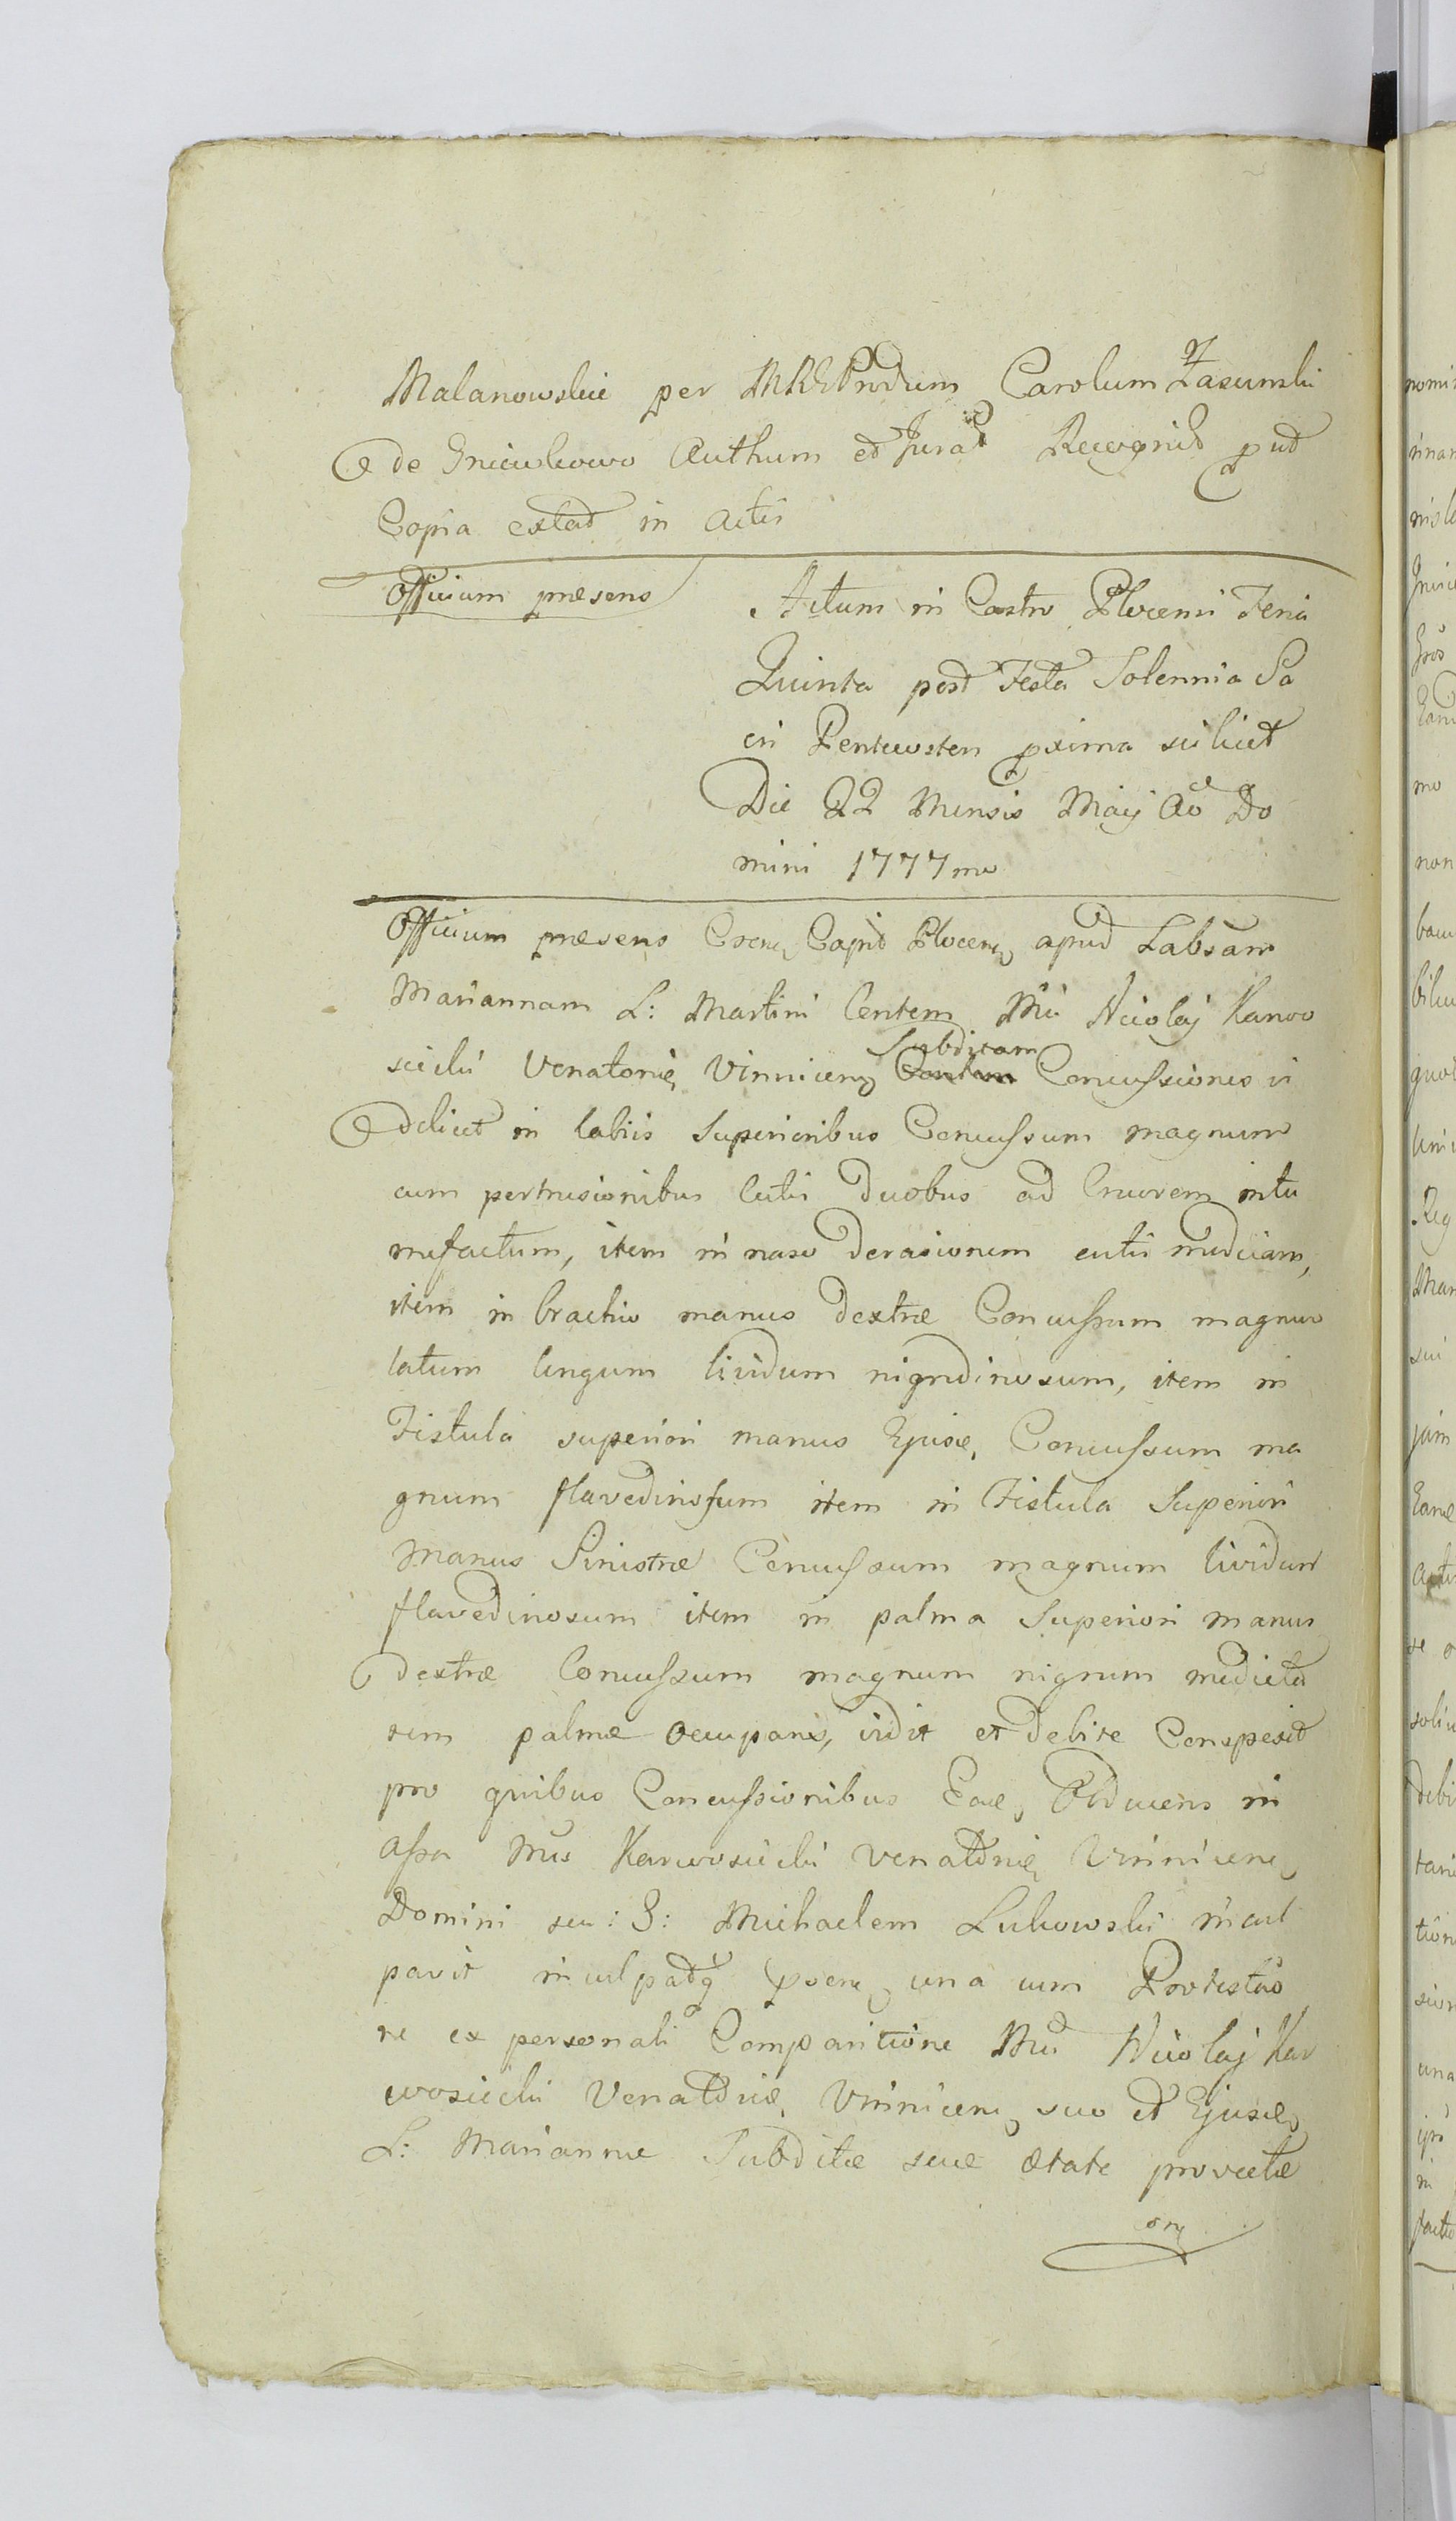 Malanowskie per MREPndum Carolum Zasunski
de Gniewkowo Authum et Jurat Recognit put
Copia extat in Actis
Officium præsens
Actum in Castro Plocensi Feria
Quinta post Festa Solennia Sa
cri Pentecosten pxima scilicet
Die 22 Mensis Maij Ao Do
mini 1777mo
Officium præsens Cren Capit Plocen apud Labsam
Mariannam L: Martini Centem Mci Nicolaj Karwo
siecki Venatoris Vinnicen Subditam Concussiones vi
delicet in labiis Superioribus Concussum magnum
cum pertusionibus Cutis duobus ad Cruorem intu
mefactum, item in naso derasionem cutis mediam,
item in brachio manus dextræ Concussum magnum
latum longum lividum nigredinosum, item in
Fistula superiori manus Ejusdæ Concussum ma
gnum flavedinosum item in Fistula Superiori
Manus Sinistræ Concussum magnum lividum
flavedinosum item in palma Superiori manus
dextræ Concussum magnum nigrum medieta
tem palmæ occupans, vidit et debite Conspexit
pro quibus Concussionibus Eadæ Obducens in
assa Mci Karwosiecki Venatoris Vinnicen
Domini sui: G: Michaelem Lukowski incul
pavit inculpatq psen una cum Protestao
ne ex personali Comparitione Mci Nicolaj Kar
wosiecki Venatoris Vinnicen suo et Ejusdæ
L: Mariannæ Subditæ suæ ætate provectæ
om